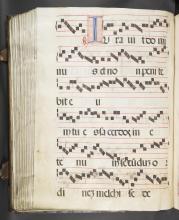 I U ra uit do mi
nu s et no n peni te
bit e u
m tu e s sa cerdos in e
te nu m secundu o
di nez melchi se de